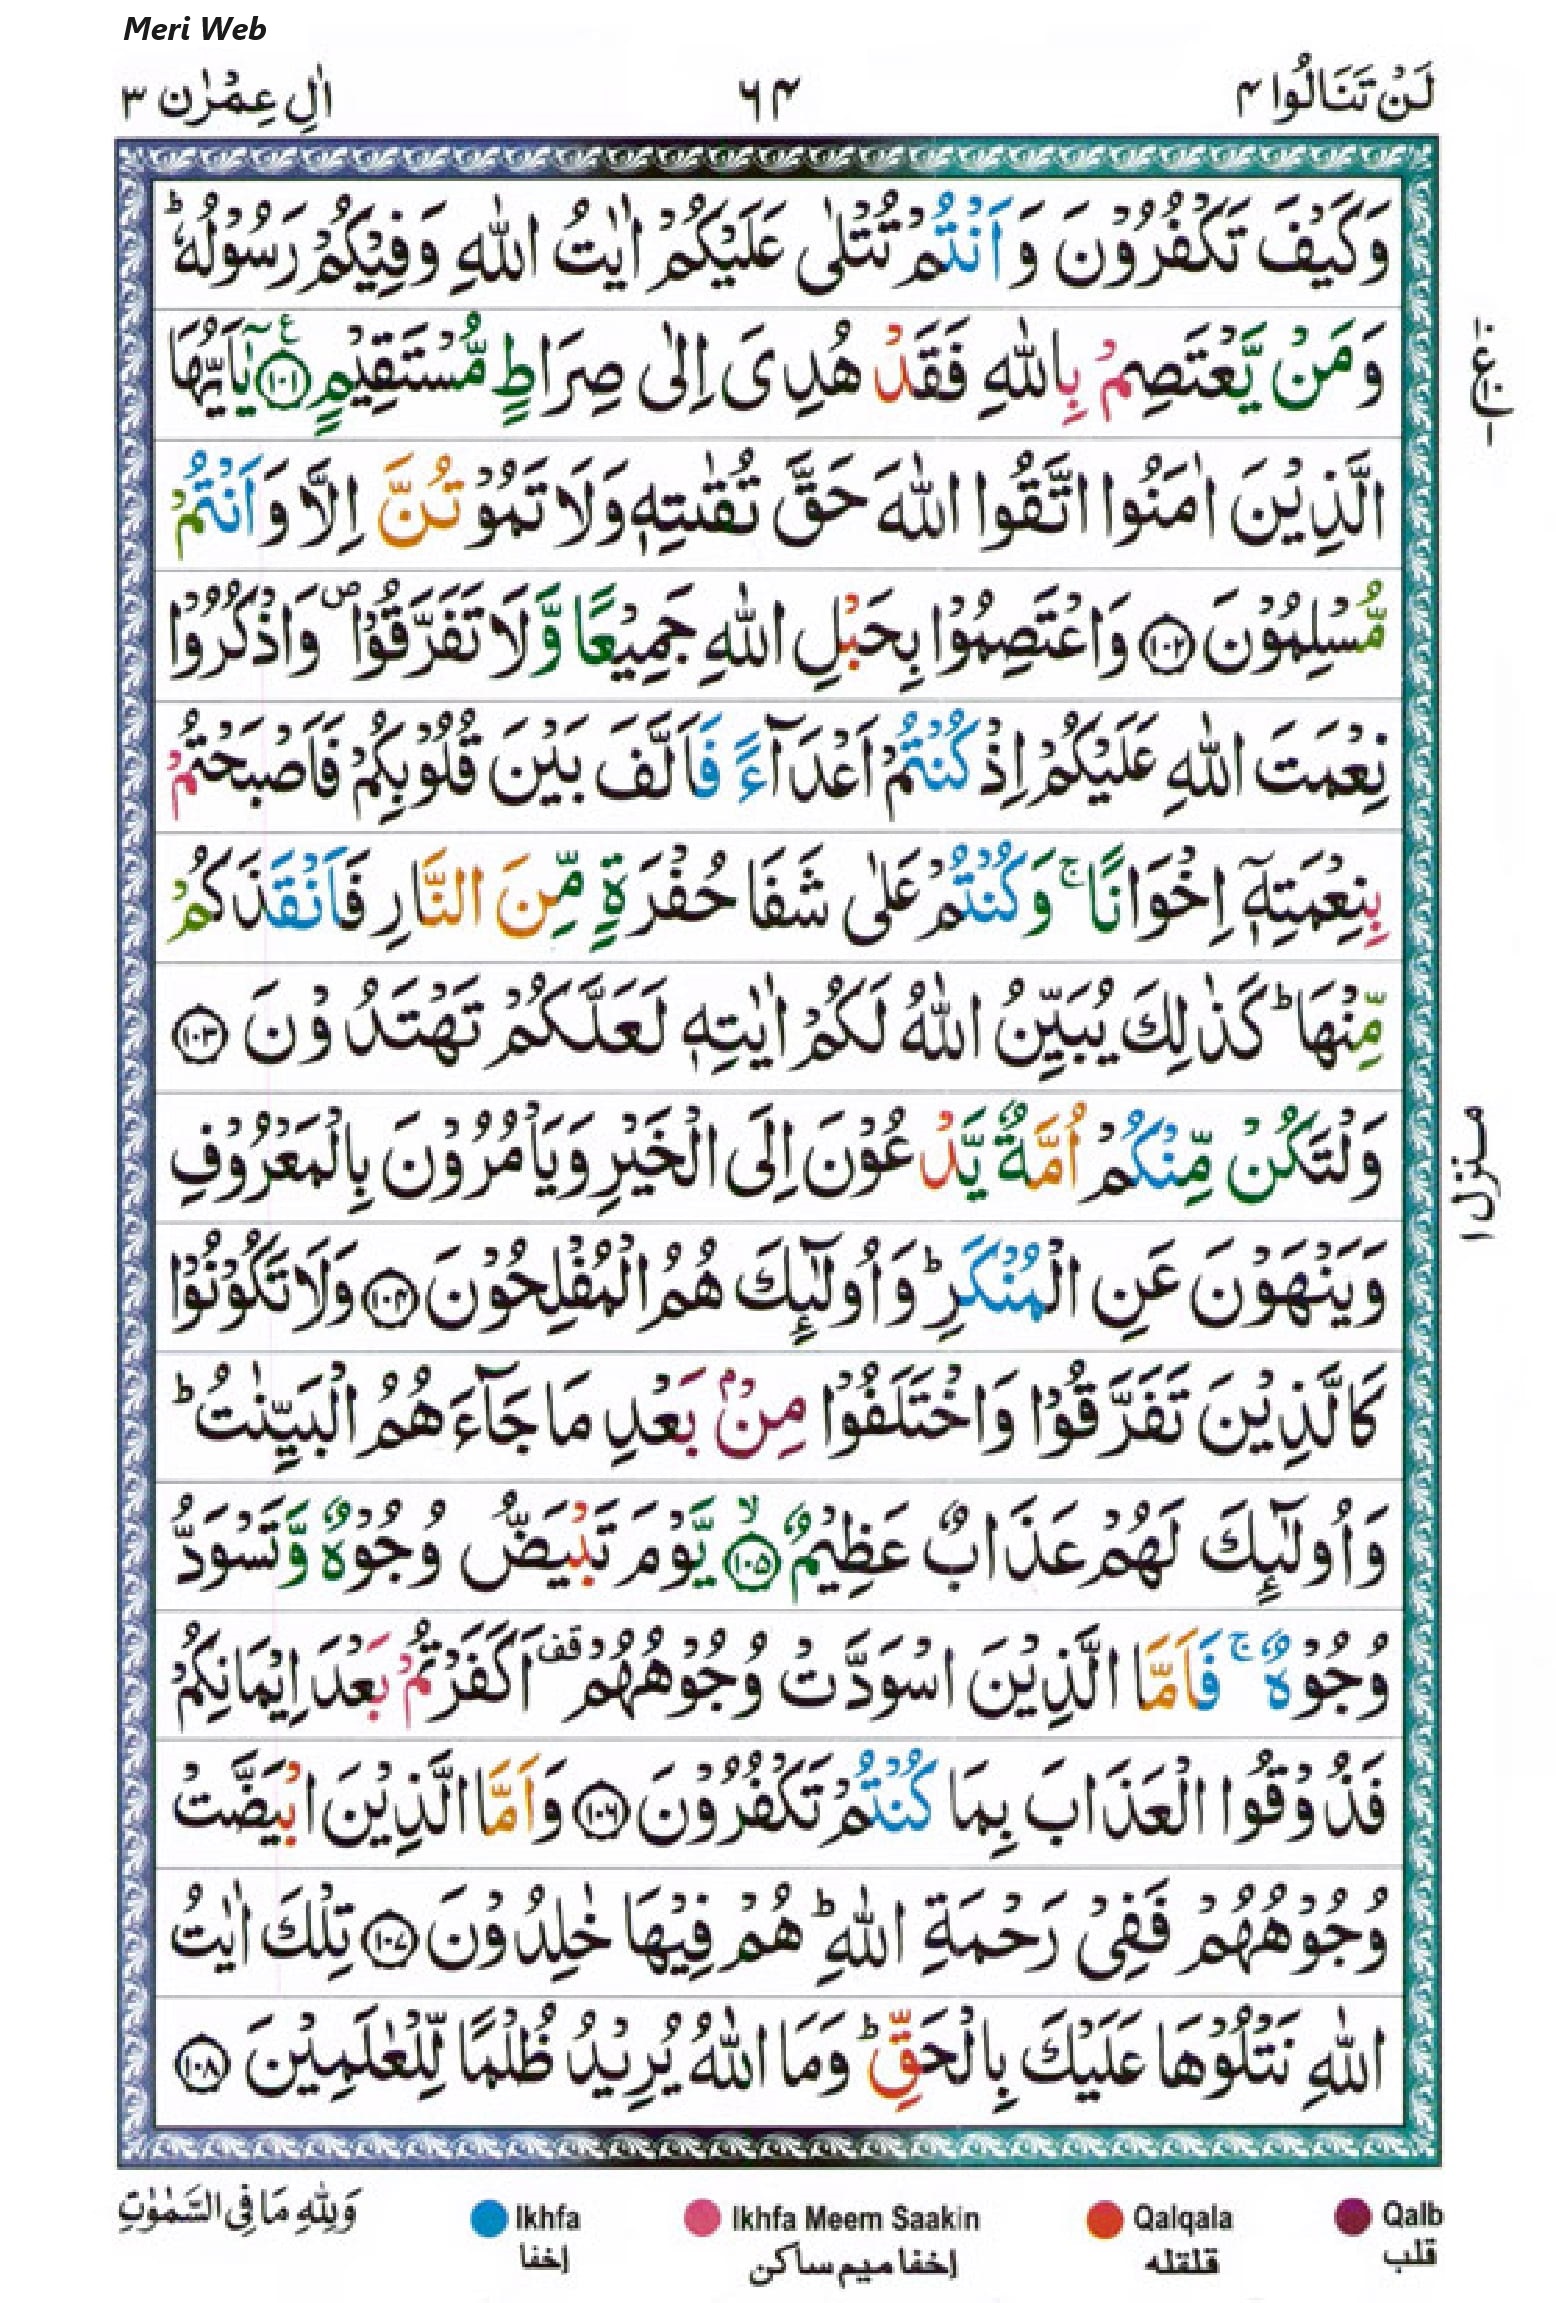 Meri Web
لَنْ تَنَالُوا ۴
۶۴
اٰلِ عِمْرٰن ۳
وَكَيْفَ تَكْفُرُوْنَ وَاَنْتُمْ تُتْلٰى عَلَيْكُمْ اٰيٰتُ اللّٰهِ وَفِيْكُمْ رَسُوْلُهٗ ؕ
وَمَنْ يَّعْتَصِمْ بِاللّٰهِ فَقَدْ هُدِىَ اِلٰى صِرَاطٍ مُّسْتَقِيْمٍ ﴿۱۰۱﴾ يٰۤاَيُّهَا
الَّذِيْنَ اٰمَنُوا اتَّقُوا اللّٰهَ حَقَّ تُقٰىتِهٖ وَلَا تَمُوْتُنَّ اِلَّا وَاَنْتُمْ
مُّسْلِمُوْنَ ﴿۱۰۲﴾ وَاعْتَصِمُوْا بِحَبْلِ اللّٰهِ جَمِيْعًا وَّلَا تَفَرَّقُوْا ۪ وَاذْكُرُوْا
نِعْمَتَ اللّٰهِ عَلَيْكُمْ اِذْ كُنْتُمْ اَعْدَآءً فَاَلَّفَ بَيْنَ قُلُوْبِكُمْ فَاَصْبَحْتُمْ
بِنِعْمَتِهٖۤ اِخْوَانًا ۚ وَكُنْتُمْ عَلٰى شَفَا حُفْرَةٍ مِّنَ النَّارِ فَاَنْقَذَكُمْ
مِّنْهَا ؕ كَذٰلِكَ يُبَيِّنُ اللّٰهُ لَكُمْ اٰيٰتِهٖ لَعَلَّكُمْ تَهْتَدُوْنَ ﴿۱۰۳﴾
وَلْتَكُنْ مِّنْكُمْ اُمَّةٌ يَّدْعُوْنَ اِلَى الْخَيْرِ وَيَاْمُرُوْنَ بِالْمَعْرُوْفِ
وَيَنْهَوْنَ عَنِ الْمُنْكَرِ ؕ وَاُولٰٓئِكَ هُمُ الْمُفْلِحُوْنَ ﴿۱۰۴﴾ وَلَا تَكُوْنُوْا
كَالَّذِيْنَ تَفَرَّقُوْا وَاخْتَلَفُوْا مِنْۢ بَعْدِ مَا جَآءَهُمُ الْبَيِّنٰتُ ؕ
وَاُولٰٓئِكَ لَهُمْ عَذَابٌ عَظِيْمٌ ﴿۱۰۵﴾ۙ يَّوْمَ تَبْيَضُّ وُجُوْهٌ وَّتَسْوَدُّ
وُجُوْهٌ ۚ فَاَمَّا الَّذِيْنَ اسْوَدَّتْ وُجُوْهُهُمْ قف اَكَفَرْتُمْ بَعْدَ اِيْمَانِكُمْ
فَذُوْقُوا الْعَذَابَ بِمَا كُنْتُمْ تَكْفُرُوْنَ ﴿۱۰۶﴾ وَاَمَّا الَّذِيْنَ ابْيَضَّتْ
وُجُوْهُهُمْ فَفِىْ رَحْمَةِ اللّٰهِ ؕ هُمْ فِيْهَا خٰلِدُوْنَ ﴿۱۰۷﴾ تِلْكَ اٰيٰتُ
اللّٰهِ نَتْلُوْهَا عَلَيْكَ بِالْحَقِّ ؕ وَمَا اللّٰهُ يُرِيْدُ ظُلْمًا لِّلْعٰلَمِيْنَ ﴿۱۰۸﴾
منزل ۱
وَلِلّٰهِ مَا فِى السَّمٰوٰتِ
Ikhfa
اخفا
Ikhfa Meem Saakin
اخفا میم ساکن
Qalqala
قلقله
Qalb
قلب